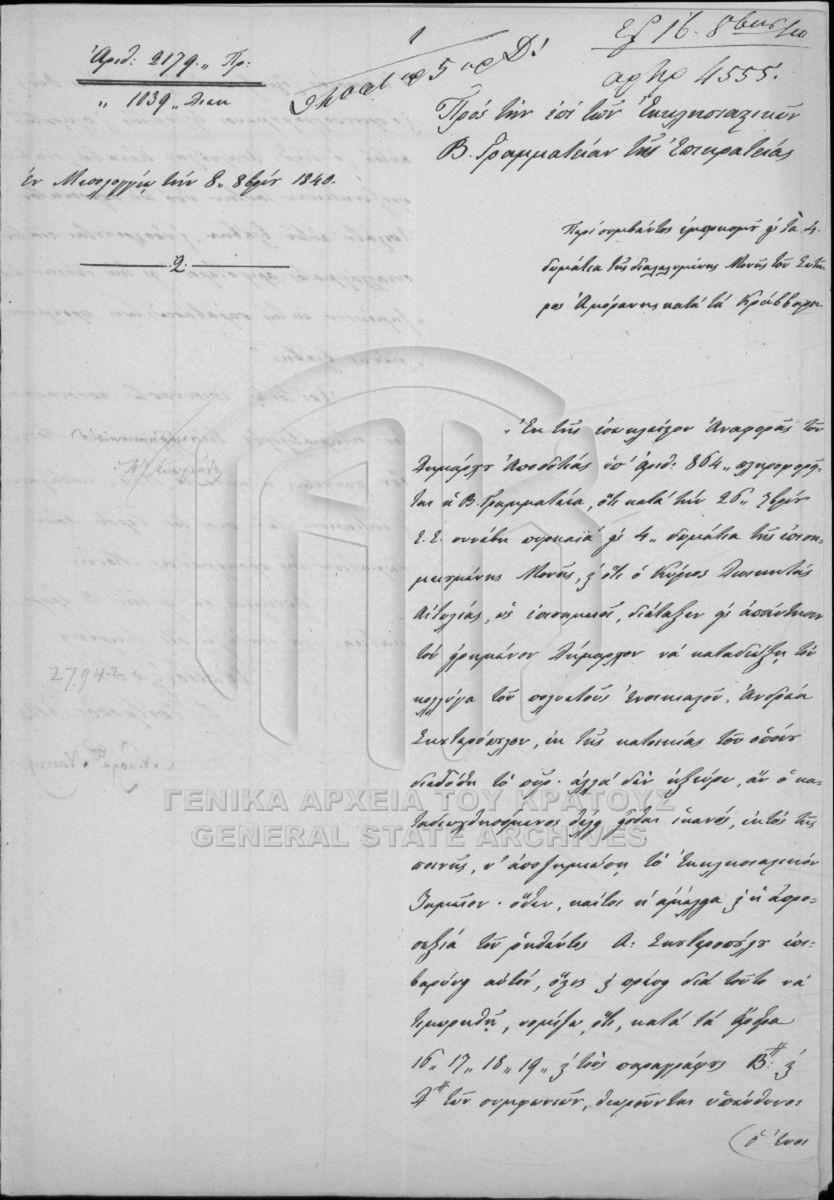 Ἀριθ: 2179 „ Πρ:
„ 1039 „ Διεκ
Ἐν Μεσολογγίῳ τὴν 8 „ 8βρίου 1840.
2
1
αρ 5 αρ Δ!
16. 8βρίου
αρ πρ 4555.
Πρὸς τὴν ἐπὶ τῶν Ἐκκλησιαστικῶν
Β. Γραμματείαν τῆς Ἐπικρατείας
Περὶ συμβάντος ἐμπρησμοῦ εἰς τὰ 4.
δωμάτια τῆς διαλελυμένης Μονῆς τοῦ Σωτῆ-
ρος Ἀμόρανης κατὰ τὰ Κράββαρα.
Ἐκ τῆς ἐγκλείστου Ἀναφορᾶς τοῦ
Δημάρχου Ἀποδοτίας ὑπ' ἀριθ: 864 „ πληροφορεῖ-
ται ἡ Β. Γραμματεία, ὅτι κατὰ τὴν 26 „ 7βρίου
Ε.Ε. συνέβη πυρκαϊὰ εἰς 4 „ δωμάτια τῆς ἐπιση-
μειωμένης Μονῆς, καὶ ὅτι ὁ Κύριος Διοικητὴς
Αἰτωλίας, ὡς ἐπίσημος, διέταξεν εἰς ἀπάντησιν
τὸν εἰρημένον Δήμαρχον νὰ καταδιώξῃ τὸν
κολλήγα τοῦ πολυετοῦς Ἐνοικιαστοῦ, Ἀνδρέα
Σκυτερόπουλον, ἐκ τῆς κατοικίας τοῦ ὁποίου
διεδόθη τὸ πῦρ· ἀλλὰ δὲν ἠξεύρω, ἂν ὁ κα-
ταδιωχθησόμενος θέλει εἶσθαι ἱκανὸς, ἐκτὸς τῆς
ποινῆς, ν' ἀποζημιώσῃ τὸ Ἐκκλησιαστικὸν
Ταμεῖον· ὅθεν, καίτοι ἡ ἀμέλεια καὶ ἡ ἀπρο-
σεξία τοῦ ῥηθέντος Α. Σκυτεροπούλου ἐπι-
βαρύνει αὐτὸν, ὅστις καὶ πρέπει διὰ τοῦτο νὰ
τιμωρηθῇ, νομίζω, ὅτι, κατὰ τὰ ἄρθρα
16 „ 17 „ 18 „ 19 „ καὶ τοὺς παραγράφους Β: καὶ
Δ τῶν συμφωνιῶν, θεωροῦνται ὑπεύθυνοι
ὁ Ἐνοι
27942
ΓΕΝΙΚΑ ΑΡΧΕΙΑ ΤΟΥ ΚΡΑΤΟΥΣ
GENERAL STATE ARCHIVES